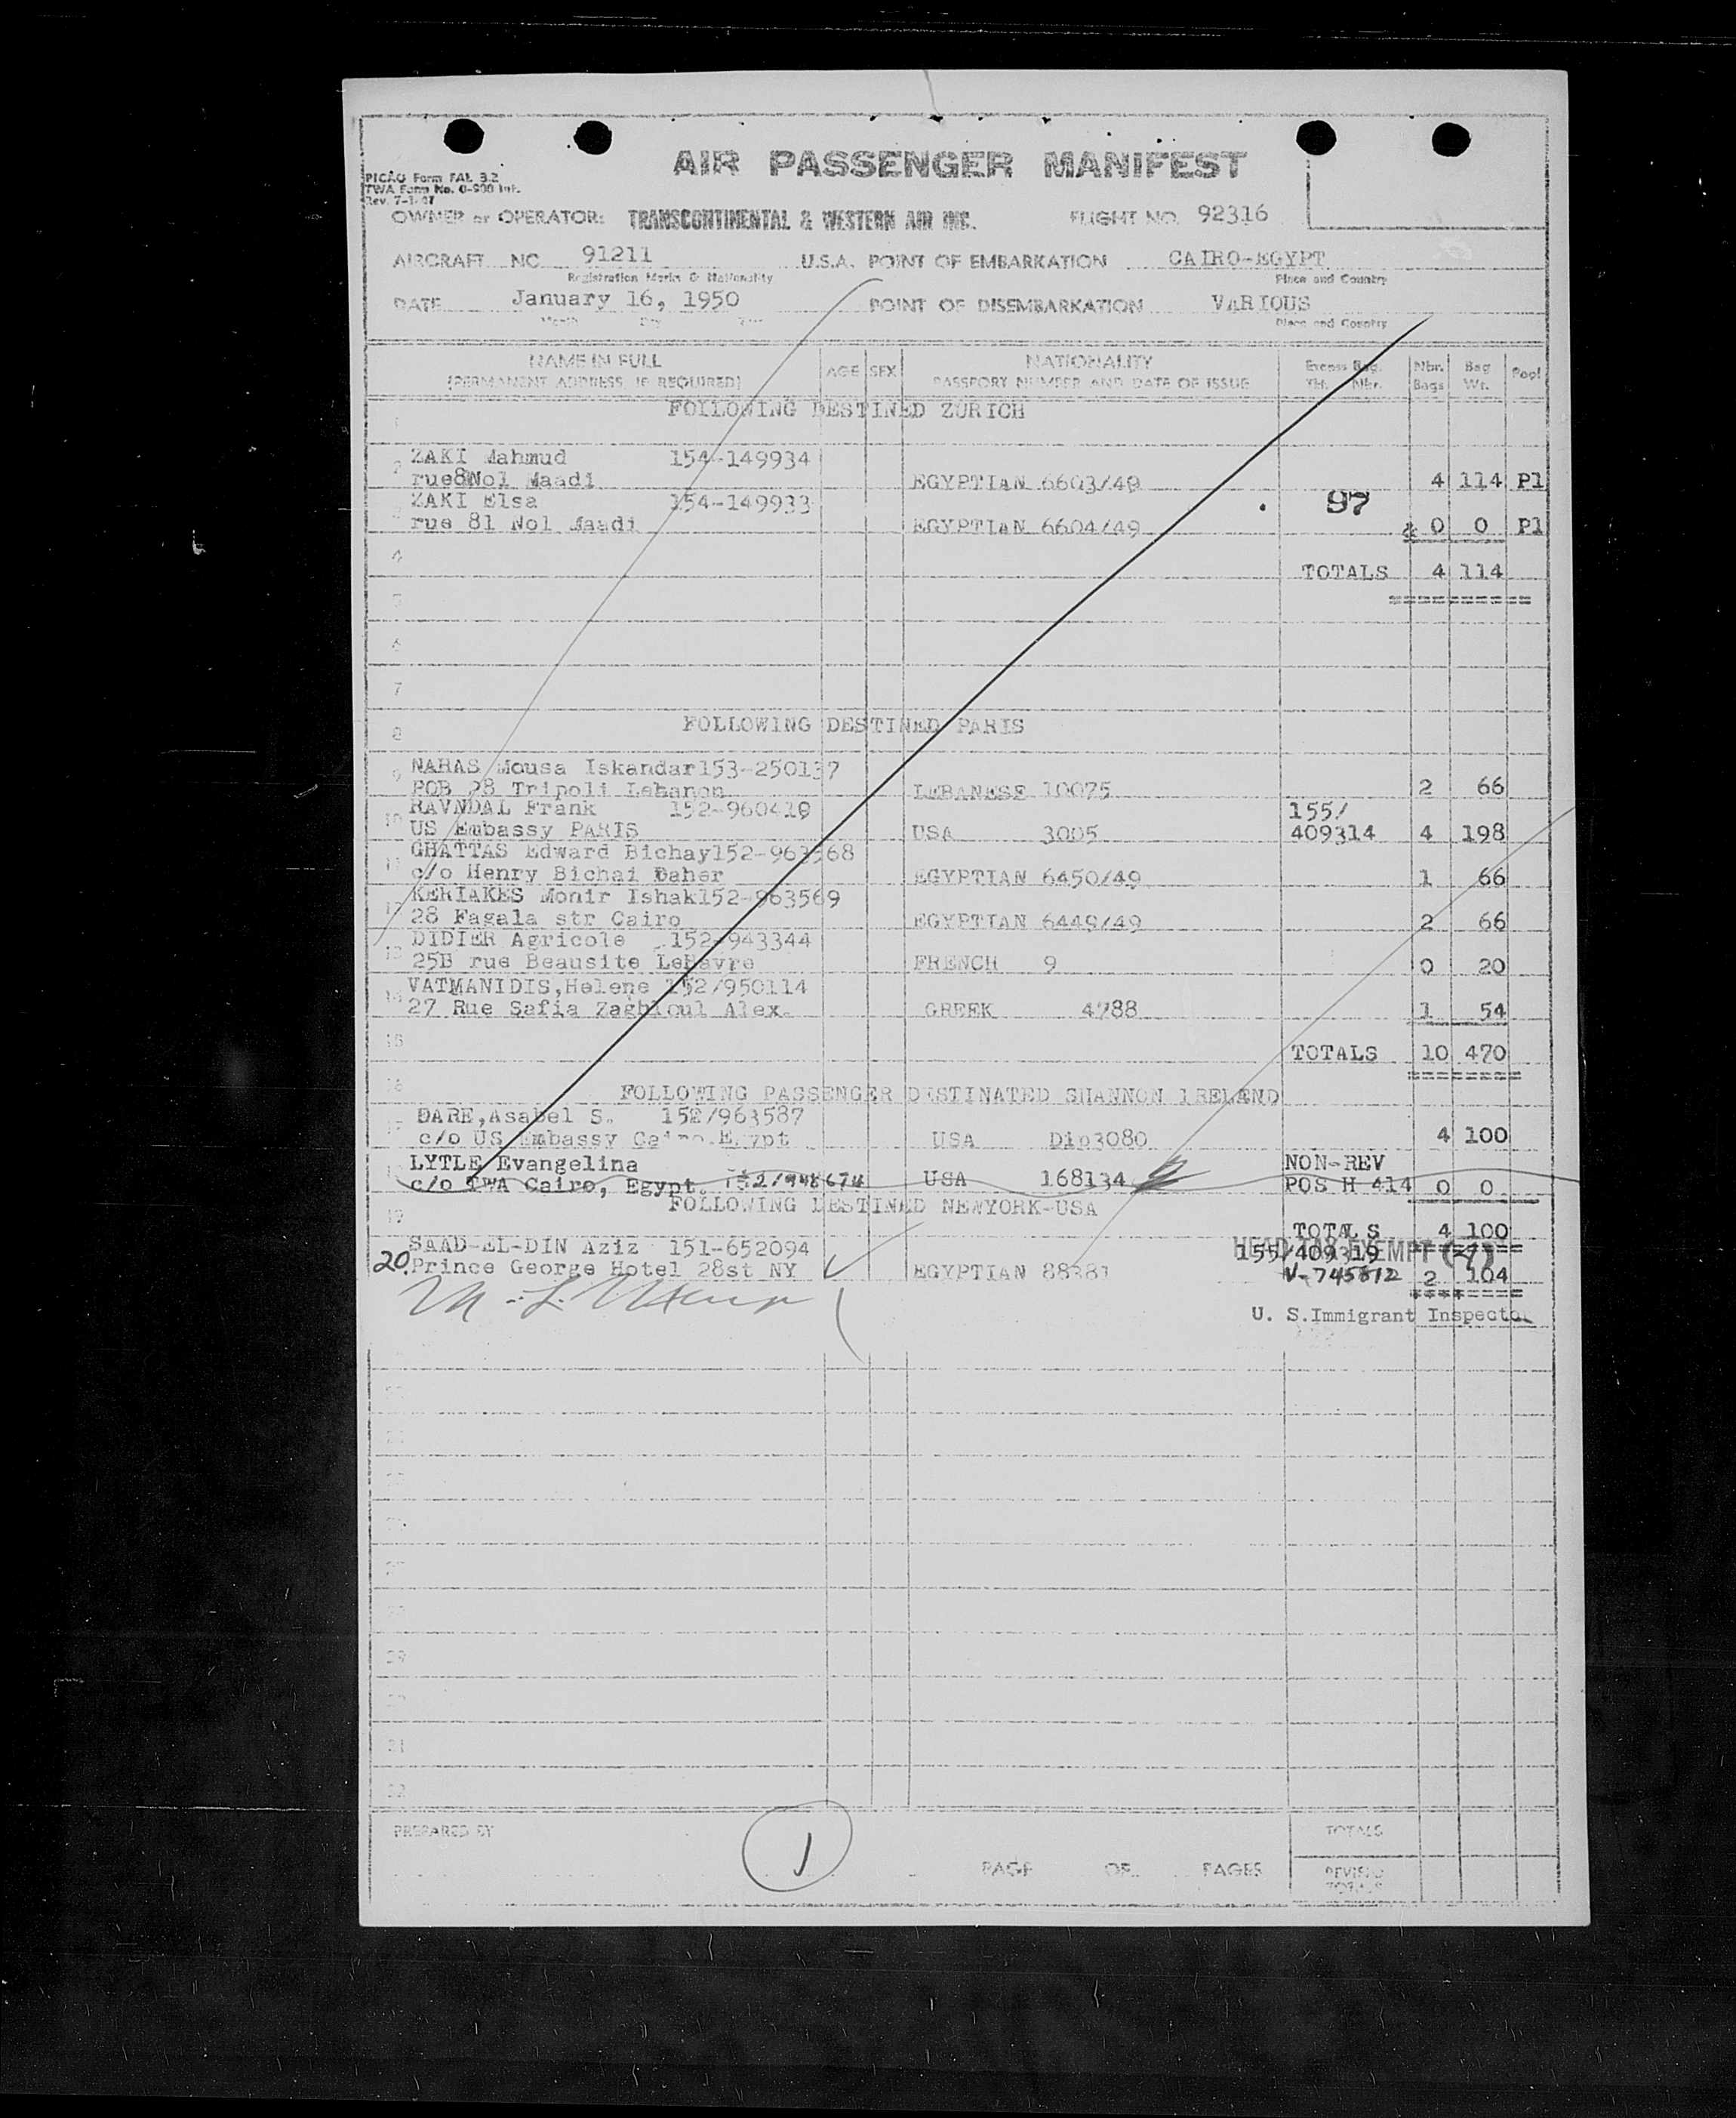 AIR PASSENGER MANIFEST
PICAO Form FAL 3.2
TWA Form No. 0-900 Int.
Rev. 7-1-47
OWNER or OPERATOR: TRANSCONTINENTAL & WESTERN AIR INC. FLIGHT NO. 92316
AIRCRAFT NC 91211 U.S.A. POINT OF EMBARKATION CAIRO-EGYPT
Registration Marks & Nationality Place and Country
DATE January 16, 1950 POINT OF DISEMBARKATION VARIOUS
Month Day Year Place and Country
NAME IN FULL AGE SEX NATIONALITY Excess Bag. Nbr. Bag Pool
(PERMANENT ADDRESS, IF REQUIRED) PASSPORT NUMBER AND DATE OF ISSUE Tkt. Nbr. Bags Wt.
1 FOLLOWING DESTINED ZURICH
2 ZAKI Mahmud 154-149934
rue8Nol Maadi EGYPTIAN 6603/49 4 114 Pl
3 ZAKI Elsa 154-149933 97
rue 81 Nol Maadi EGYPTIAN 6604/49 & 0 0 Pl
4 TOTALS 4 114
5
6
7
8 FOLLOWING DESTINED PARIS
9 NAHAS Mousa Iskandar153-250137
POB 28 Tripoli Lebanon LEBANESE 10075 2 66
10 RAVNDAL Frank 152-960419 155/
US Embassy PARIS USA 3005 409314 4 198
11 GHATTAS Edward Bichay152-963568
c/o Henry Bichai Daher EGYPTIAN 6450/49 1 66
12 KERIAKES Monir Ishak152-963569
28 Fagala str Cairo EGYPTIAN 6449/49 2 66
13 DIDIER Agricole 152-943344
25B rue Beausite LeHavre FRENCH 9 0 20
14 VATMANIDIS,Helene 152/950114
27 Rue Safia Zaghloul Alex. GREEK 4788 1 54
15 TOTALS 10 470
16 FOLLOWING PASSENGER DESTINATED SHANNON IRELAND
17 DARE,Asabel S. 152/963587
c/o US Embassy Cairo.Egypt USA Dip3080 4 100
18 LYTLE Evangelina NON-REV
c/o TWA Cairo, Egypt. 152/948674 USA 168134 POS H 414 0 0
FOLLOWING DESTINED NEWYORK-USA
19 TOTALS 4 100
SAAD-EL-DIN Aziz 151-652094 155/409319 HEAD TAX EXEMPT
20. Prince George Hotel 28st NY EGYPTIAN 88381 V-745812 2 104
U. S.Immigrant Inspector
29
31
PREPARED BY TOTALS
1 PAGE OF PAGES REVISED
TOTALS